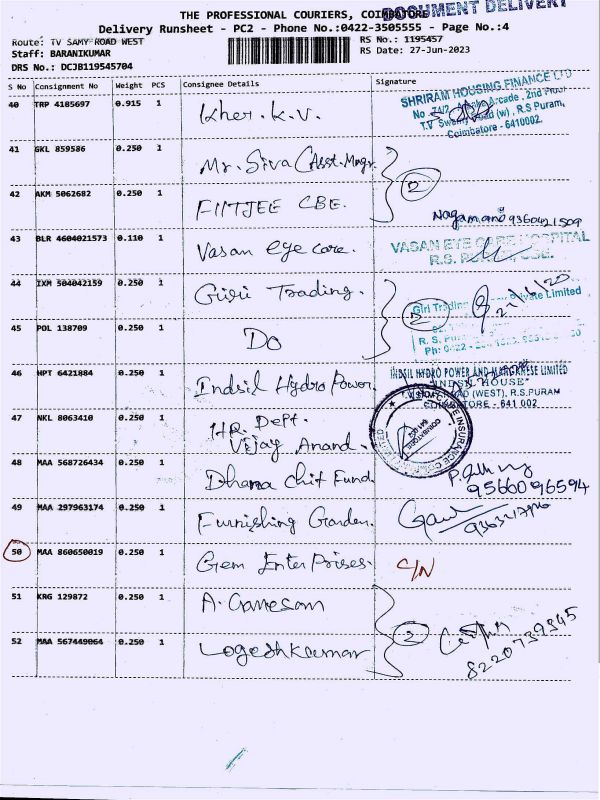 THE PROFESSIONAL COURIERS, COIMBATORE
DOCUMENT DELIVERY
Delivery Runsheet - PC2 - Phone No.:0422-3505555 - Page No.:4
Route: TV SAMY ROAD WEST
RS No.: 1195457
Staff: BARANIKUMAR
RS Date: 27-Jun-2023
DRS No.: DCJB119545704
S No Consignment No Weight PCS Consignee Details Signature
40 TRP 4185697 0.915 1 Kher. K.V.
SHRIRAM HOUSING FINANCE LTD
No 74/2, Arcade, 2nd Floor
T.V Swamy Road (w), R.S Puram,
Coimbatore - 6410002.
41 GKL 859586 0.250 1 Mr. Siva (Asst. Mngr.
2
42 AKM 5062682 0.250 1 FIITJEE CBE.
9360421509
43 BLR 4604021573 0.110 1 Vasan eye care.
VASAN EYE CARE HOSPITAL
R.S. PURAM, CBE.
44 IXM 504042159 0.250 1 Giri Trading.
2
Giri Trading Private Limited
45 POL 138709 0.250 1 Do
46 HPT 6421884 0.250 1 Indsil Hydro Power
INDSIL HYDRO POWER AND MANGANESE LIMITED
"INDSIL HOUSE"
ROAD (WEST), R.S.PURAM
COIMBATORE - 641 002
47 NKL 8063410 0.250 1 HR. Dept.
Vijay Anand.
48 MAA 568726434 0.250 1 Dhana Chit Fund.
9566096594
49 MAA 297963174 0.250 1 Furnishing Garden.
50 MAA 860650019 0.250 1 Gem Enter Prises. C/N
51 KRG 129872 0.250 1 A. Ganesam
2
8220739345
52 MAA 567449064 0.250 1 Logeshkumar